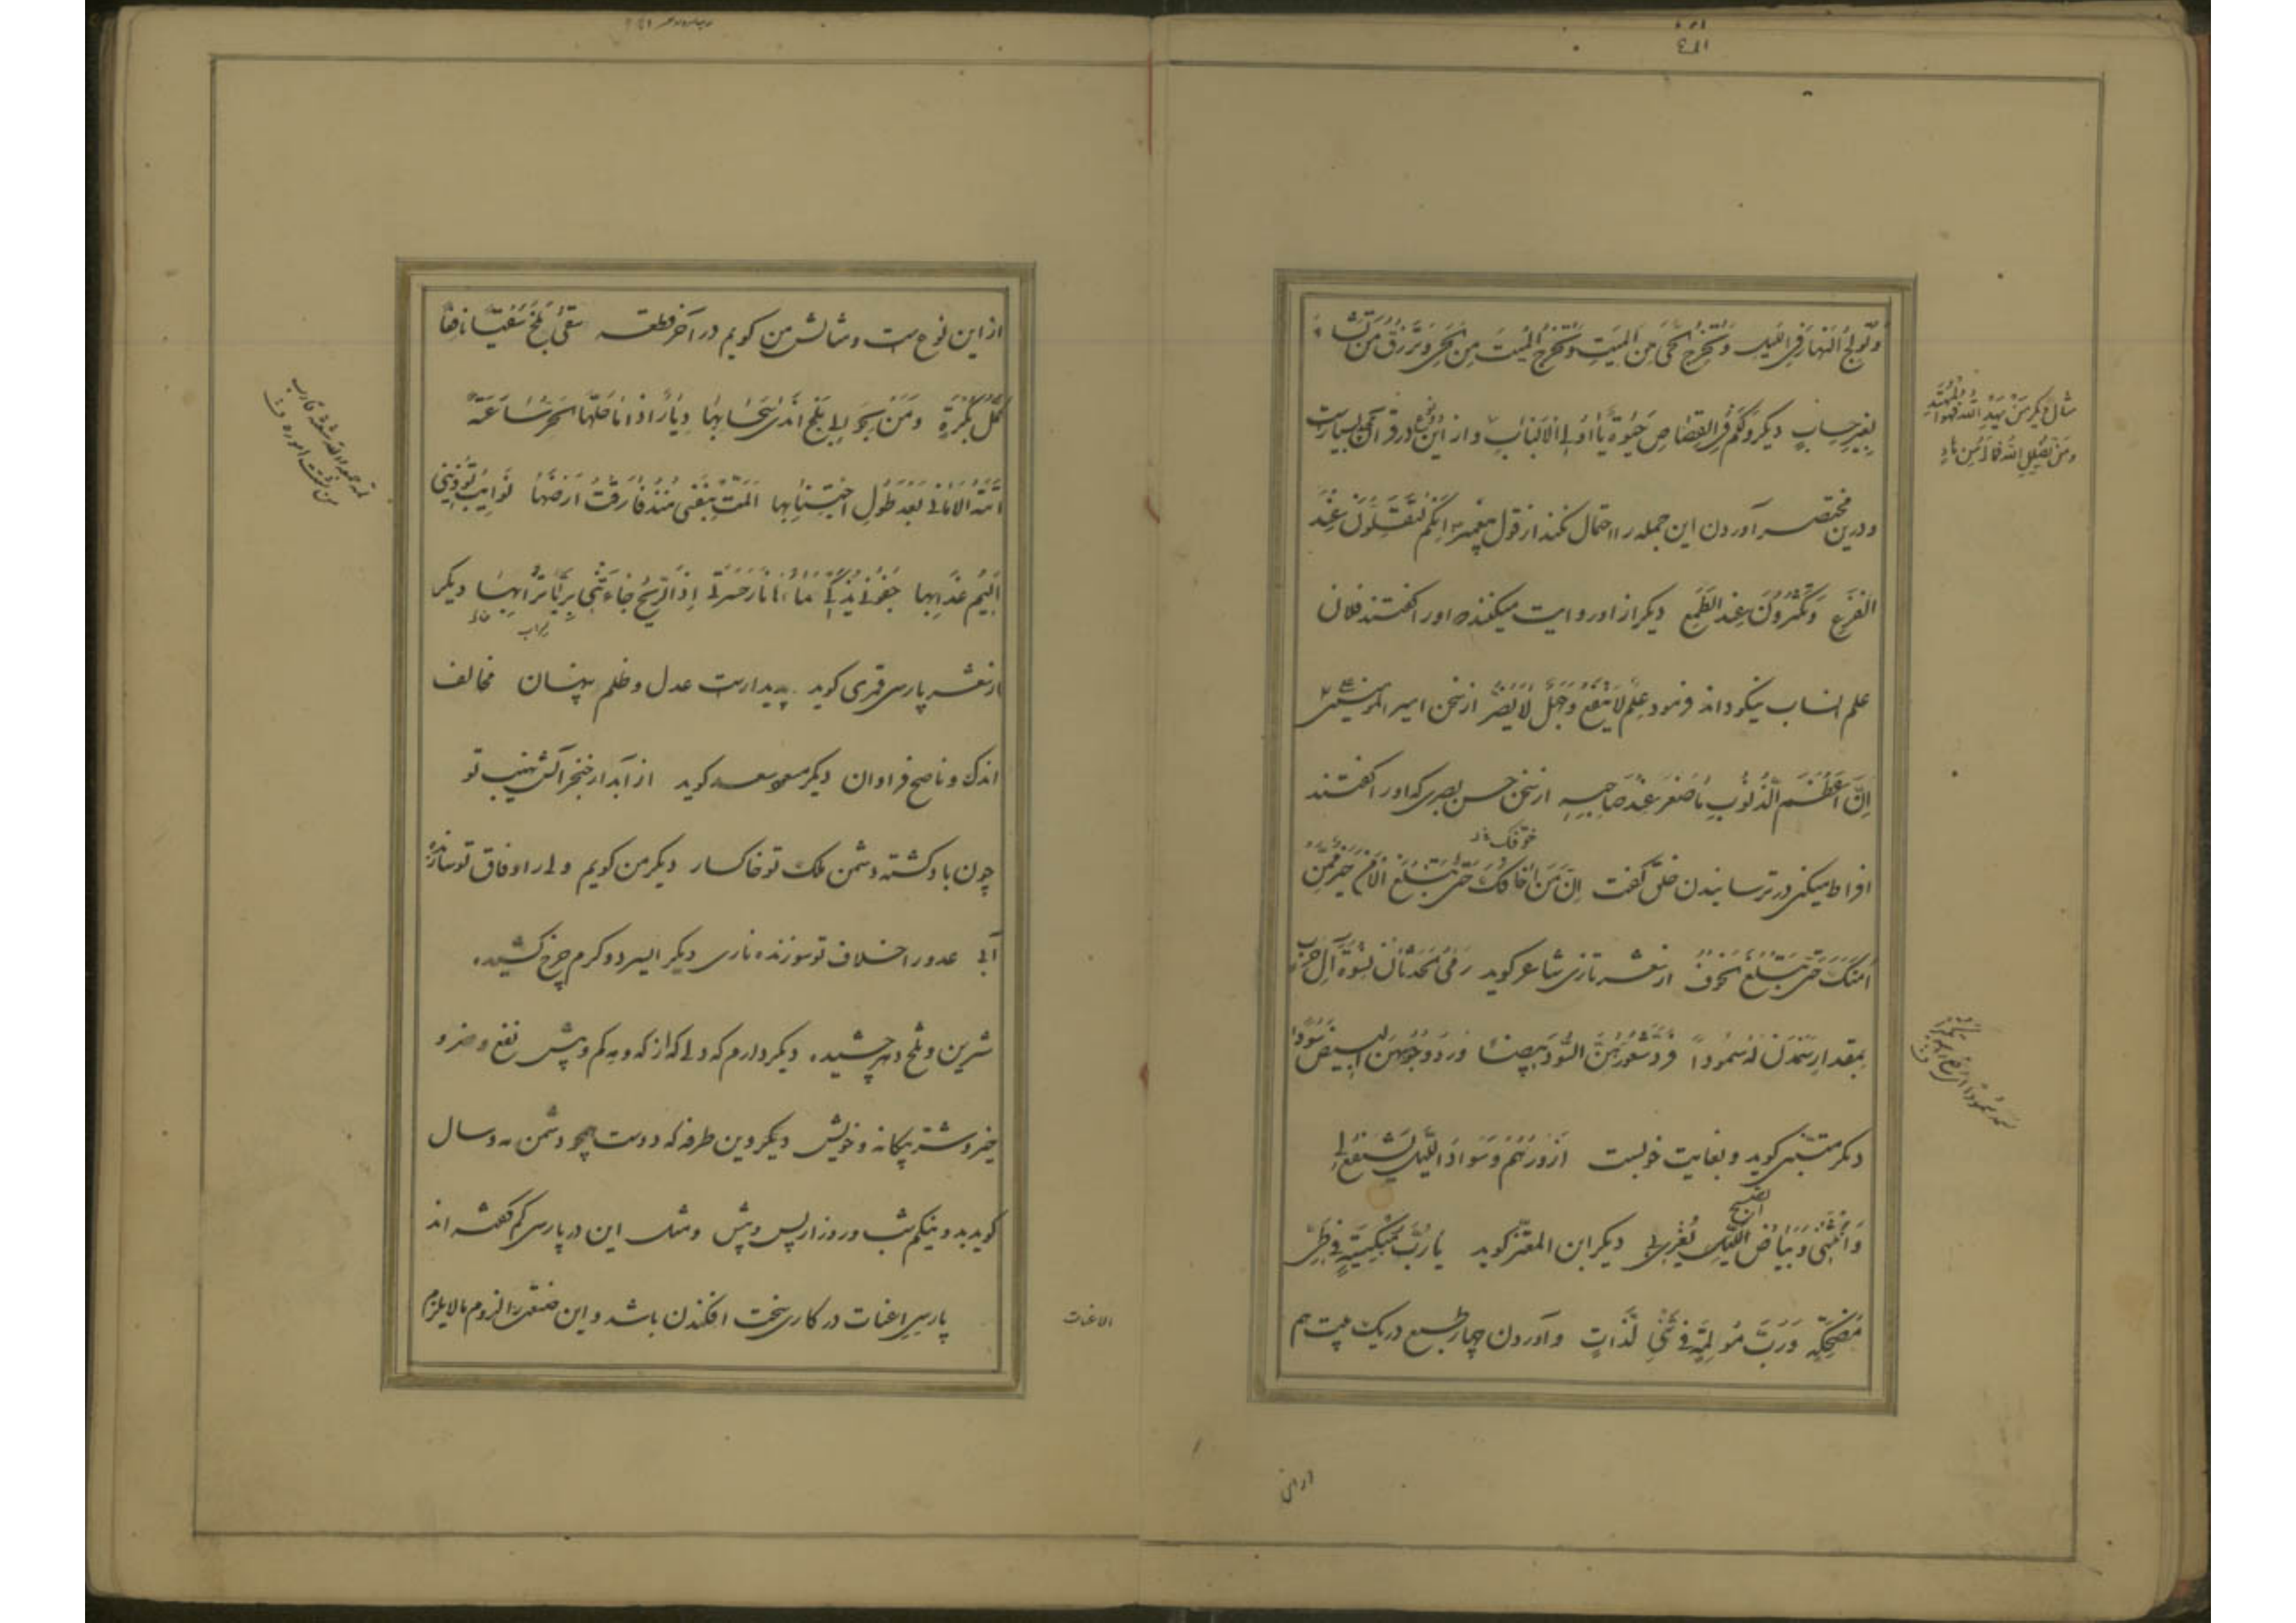 وَتُولِجُ النَّهَارَ فِی اللَّیلِ وَتُخْرِجُ الْحَیَّ مِنَ الْمَیِّتِ وَتُخْرِجُ الْمَیِّتَ مِنَ الْحَیِّ وَتَرْزُقُ مَنْ تَشَاءُ
بِغَیرِ حِسابٍ دیکر وَلَکُمْ فِی القِصَاصِ حَیٰوةٌ یَا اُولِی الْاَلْبَابِ و از این نوع در قرآن بسیارست
و درین مختصر آوردن این جمله را احتمال نکند از قول پیغمبر اِنَّکُمْ لَتَقِلُّونَ عِنْدَ
الفَزَعِ وَتَکْثُرُونَ عِنْدَ الطَّمَعِ دیکر از او روایت میکنند که اورا کفتند فلان
علم انساب نیکو داند فرمود عِلْمٌ لَا یَنْفَعُ وَجَهْلٌ لَا یَضُرُّ از سخن امیر المومنین علی
اِنَّ اَعْظَمَ الذُّنُوبِ مَا صَغُرَ عِنْدَ صَاحِبِهِ از سخن حسن بصری که اورا کفتند
افراط میکنی در ترسانیدن خلق کفت اِنَّ مَنْ اَخَافَکَ حَتّی تَبْلُغَ الْاَمْنَ خَیْرٌ مِمَّنْ
خوّفک
اٰمَنَکَ حَتّی تَبْلُغَ الْخَوْفَ از شعر تازی شاعر کوید رَمَی الْحَدَثَانُ نِسْوَةَ آلِ حَرْبٍ
بِمِقْدَارٍ سَمَدْنَ لَهُ سُمُوداً فَرَدَّ شُعُورَهُنَّ السُّودَ بِیضاً وَرَدَّ وُجُوهَهُنَّ الْبِیضَ سُوداً
دیکر متنبی کوید و بغایت خوبست اَزُورُهُمْ وَسَوَادُ اللَّیلِ یَشْفَعُ لِی
الصبح
وَاَنْثَنِی وَبَیَاضُ اللَّیلِ یُغْرِی بِی دیکر ابن المعتز کوید یا رُبَّ مُبْکِیَةٍ فِی طَیِّ
مُضْحِکَةٍ وَرُبَّ مُؤلِمَةٍ فِی لَذَّاتٍ و آوردن چهار طبع در یک بیت هم
مثال دیکر مَنْ یَهْدِ اللهُ فَهُوَ الْمُهْتَدِ
وَمَنْ یُضْلِلِ اللهُ فَمَا لَهُ مِنْ هَادٍ
از این
از این نوع ست و مثالش من کویم در آخر قطعه سَقَی بَلْخَ سَقْیاً نافعاً
کُلَّ بُکْرَةٍ وَمَنْ لِی بَلْخ اَنْدَی سَحَابِهَا دِیَارٌ اِذَا مَا حَلَّهَا الْحُرُّ سَاعَةً
اَتَتْهُ الْاَمَانِی بَعْدَ طُولِ اجْتِنَابِهَا اَلَمَّتْ بِنَفْسِی مُنْذُ فَارَقْتُ اَرْضَهَا نَوَائِبُ تُؤْذِینِی
اَلِیمُ عَذَابِهَا جُفُونِی مَاءً نَارُ حَسْرَتِی اِذِ الرِّیحُ جَاءَتْنِی بِرَیَّا تُرَابِهَا دیکر
از شعر پارسی قمری کوید پدیدارست عدل و ظلم پنهان مخالف
اندک و ناصح فراوان دیکر مسعود سعد کوید از آبدار خنجر آتش نهیب تو
چون باد کشته دشمن ملک تو خاکسار دیکر من کویم ولی را وفاق تو سازنده
آبی عدو را خلاف تو سوزنده ناری دیکر ای سرد و کرم چرخ کشیده
شیرین و تلخ دهر چشیده دیکر دارم که دلی که از که و مه کم و بیش نفع و ضر و
خیر و شر بیکانه و خویش دیکر وین طرفه که دوست همچو دشمن مه و سال
کوید بد و نیکم شب و روز از پس و پیش و مثل این در پارسی کم کفته اند
پارسی اعنات در کاری سخت افکندن باشد و این صنعت را لزوم ما لا یلزم
الاعنات